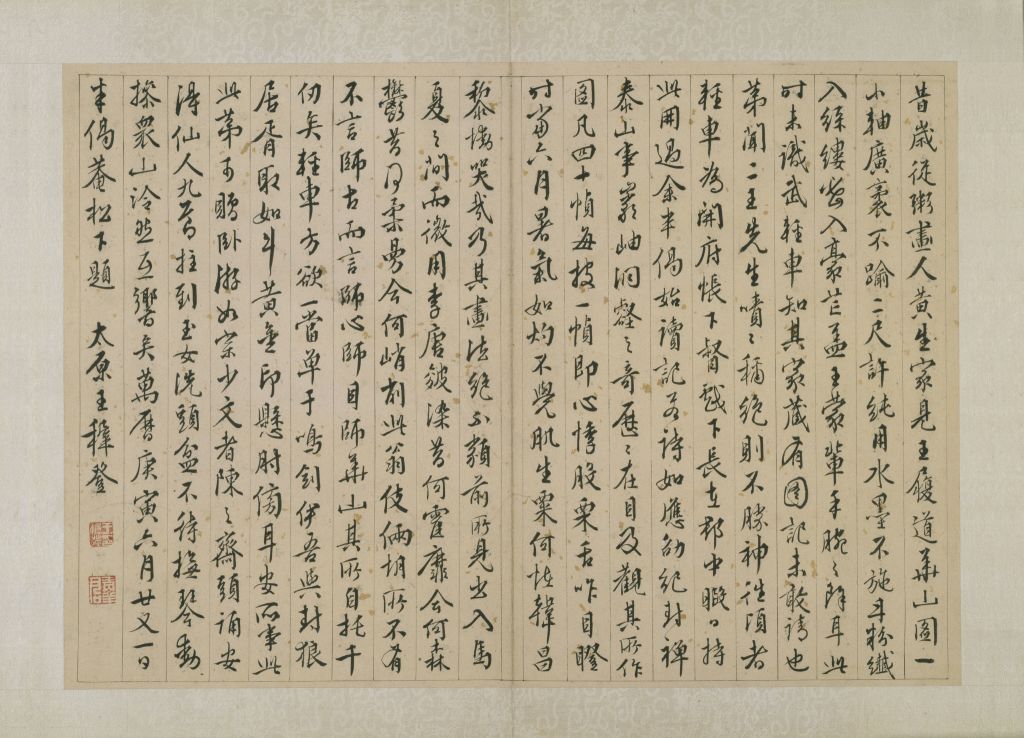 昔歲從鬻畫人黃生家見王履道華山圖一
小軸廣袤不踰二尺許純用水墨不施丹粉纖
入絲縷皆入豪芒蓋王蒙輩手腕之隽耳此
時未識武輕車知其家藏有圖記未敢請也
弟聞二王先生嘖嘖稱絕則不勝神往頃者
輕車為開府帳下督戲下長在郡中暇日持
此冊過余半偈始讀記若詩如應劭紀封禪
泰山事巖岫洞壑之奇歷歷在目及觀其所作
圖凡四十幀每披一幀即心悸股栗舌咋目瞪
時當六月暑氣如灼不覺肌生粟何怪韓昌
黎慟哭哉乃其畫法絕不類前所見出入馬
夏之間而微用李唐皴染昔何霍靡今何森
鬱昔何柔曼今何峭刻此翁伎倆胡所不有
不言師古而言師心師目師華山其所自托千
仞矣輕車方欲一當單于鳴劍伊吾與封狼
居胥取如斗黃金印懸肘傍耳安所事此
此第可贈臥游如宗少文者陳之齋頭誦安
得仙人九節拄到玉女洗頭盆不待撫琴動
操眾山泠然互響矣萬曆庚寅六月廿又一日
半偈菴松下題 太原王穉登